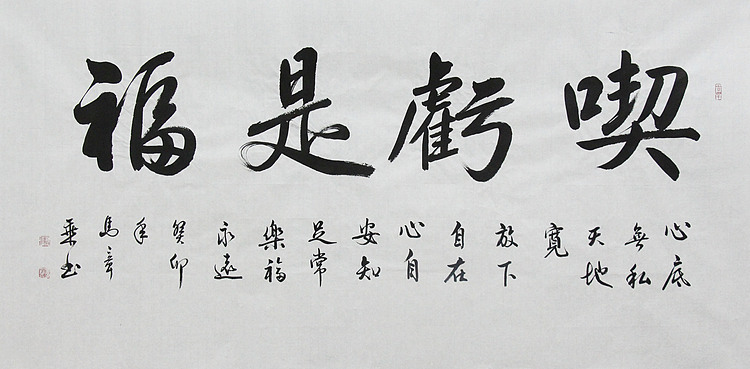 喫虧是福
心底
無私
天地
寬
放下
自在
心自
安知
足常
樂福
永遠
癸卯
年
馬章
乘书